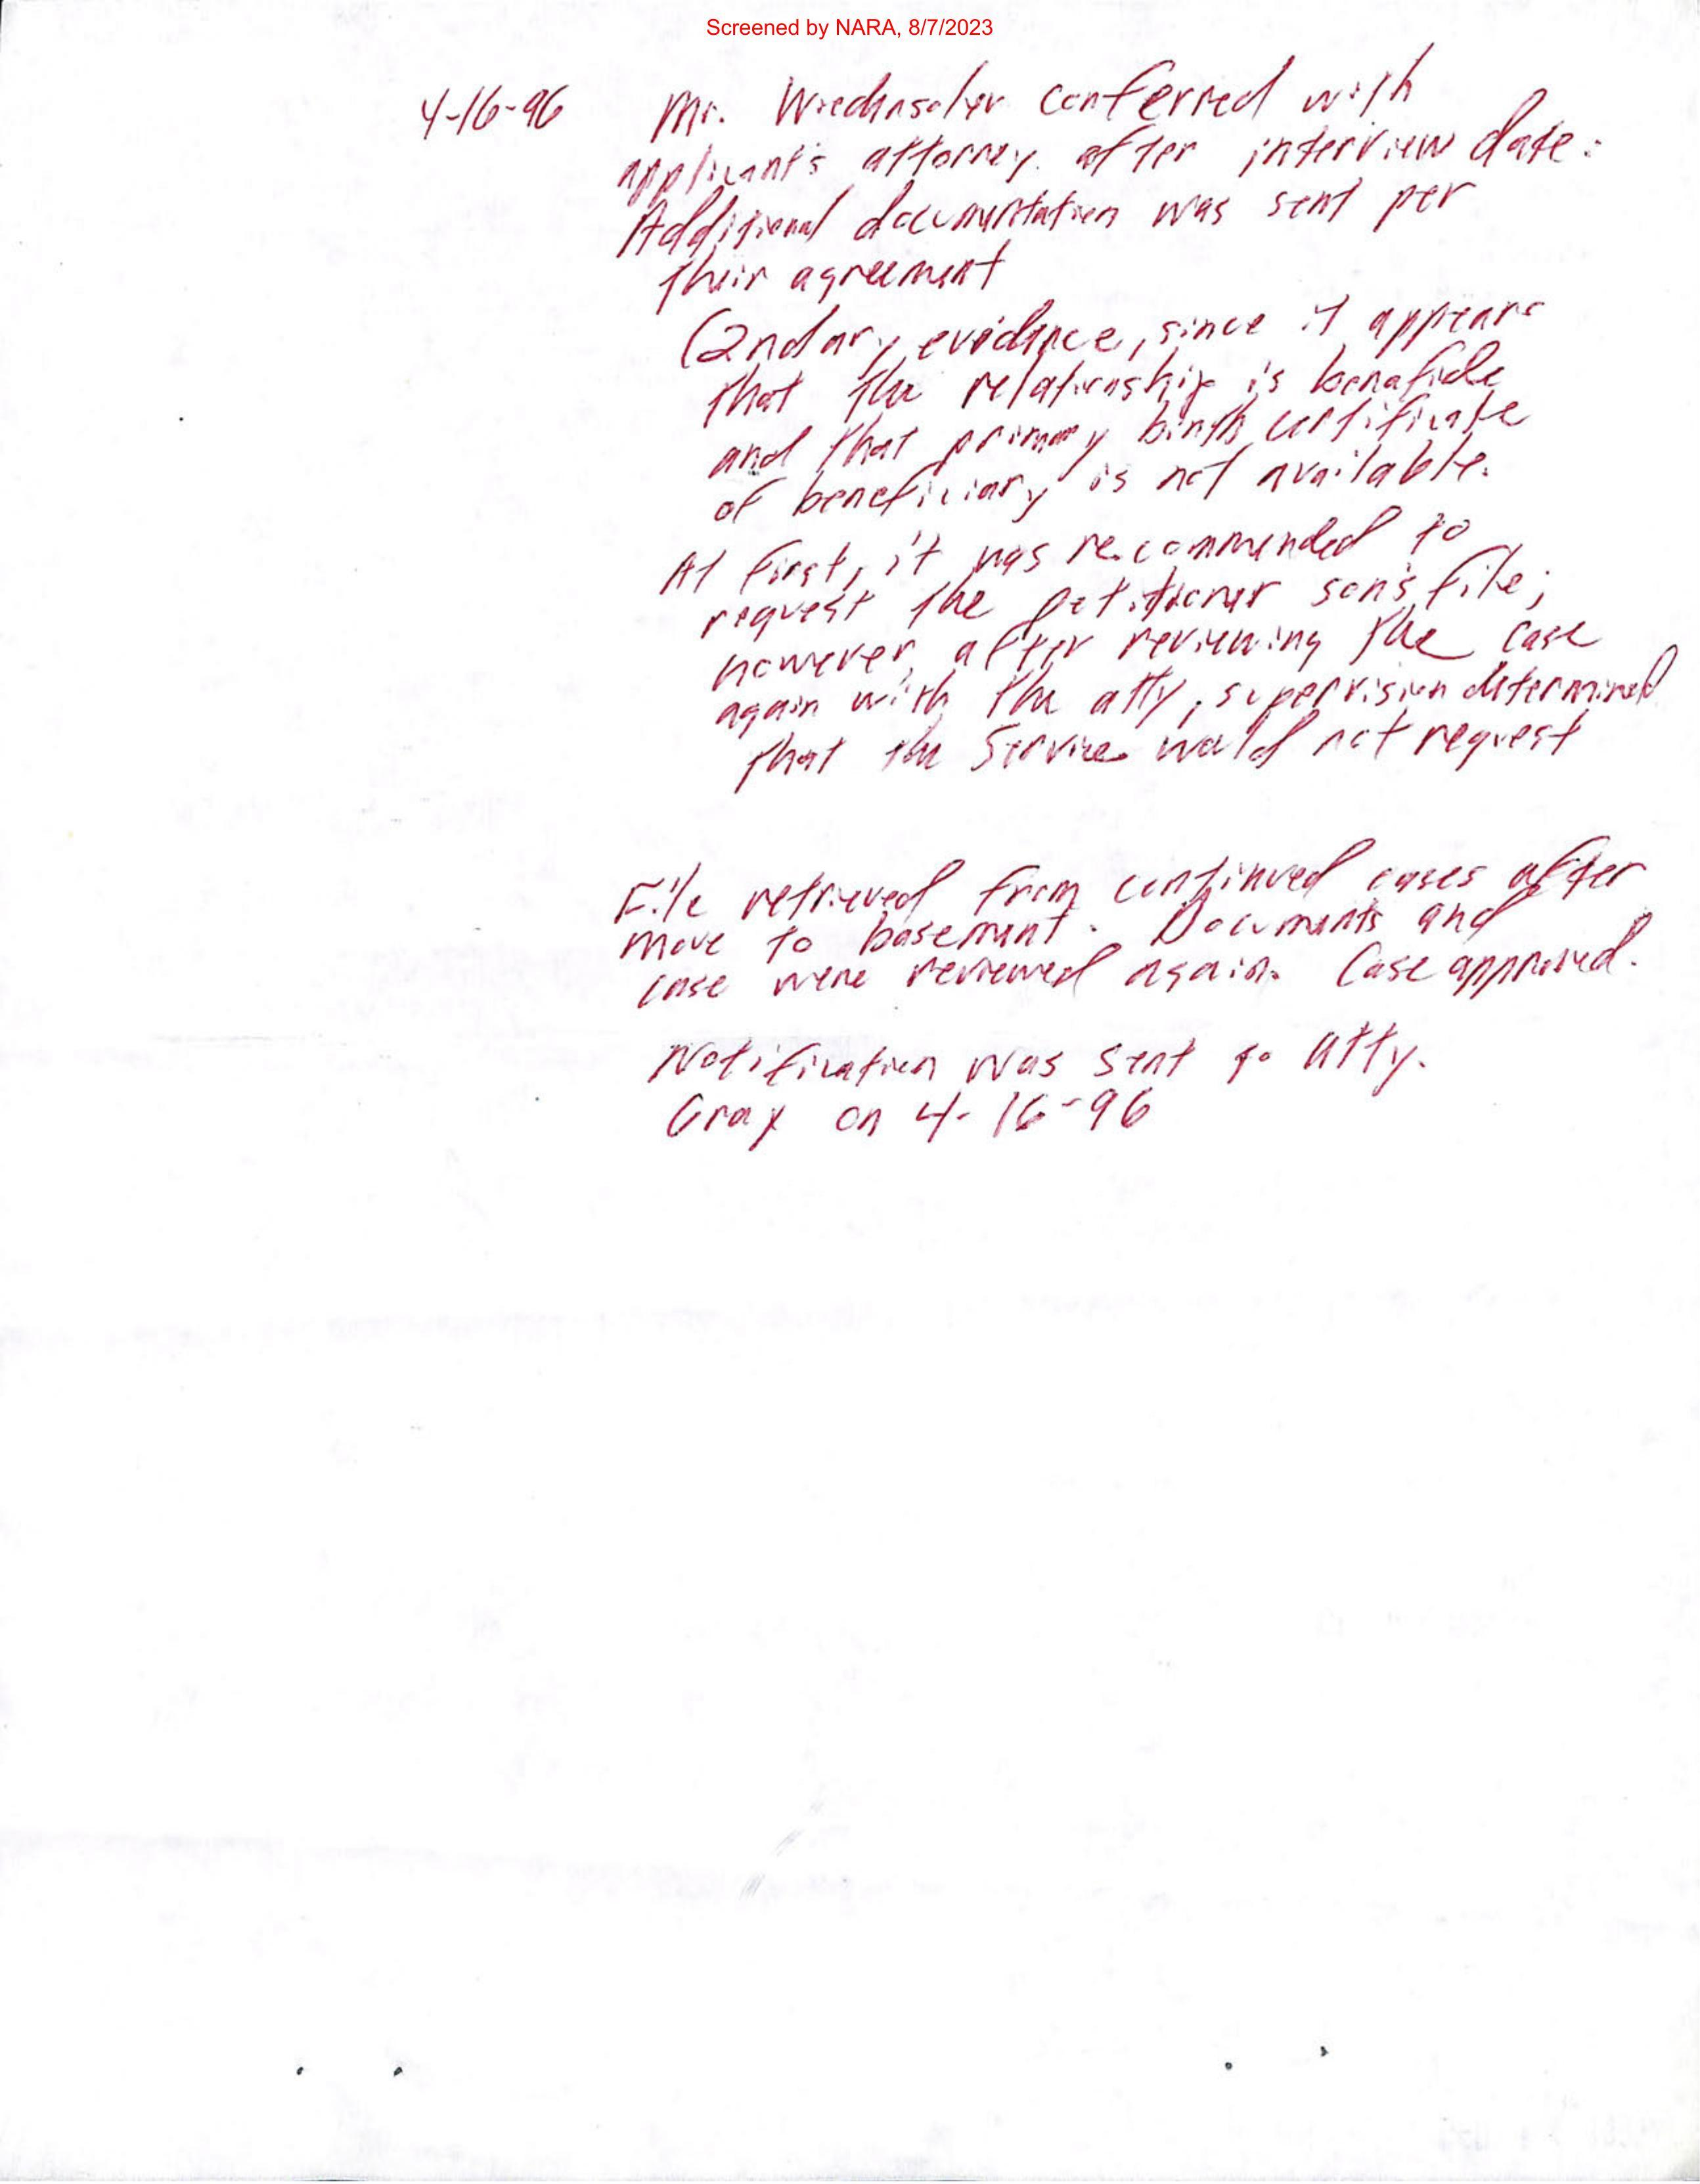 Screened by NARA, 8/7/2023
4-16-96 Mr. conferred with
applicant's attorney after interview date:
Additional documentation was sent per
their agreement
(2ndary evidence, since it appears
that the relationship is bonafide
and that primary birth certificate
of beneficiary is not available.
At first, it was recommended to
request the petitioner son's file;
however, after reviewing the case
again with the atty, supervision determined
that the Service would not request
File retrieved from continued cases after
move to basement. Documents and
case were reviewed again. Case approved.
Notification was sent to Atty.
Gray on 4-16-96